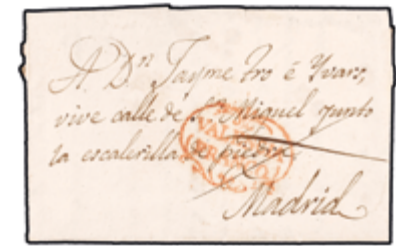 A Dn Jayme Yvars,
vive calle de Sn Miguel junto
la escalerilla de piedra
Madrid
VAL